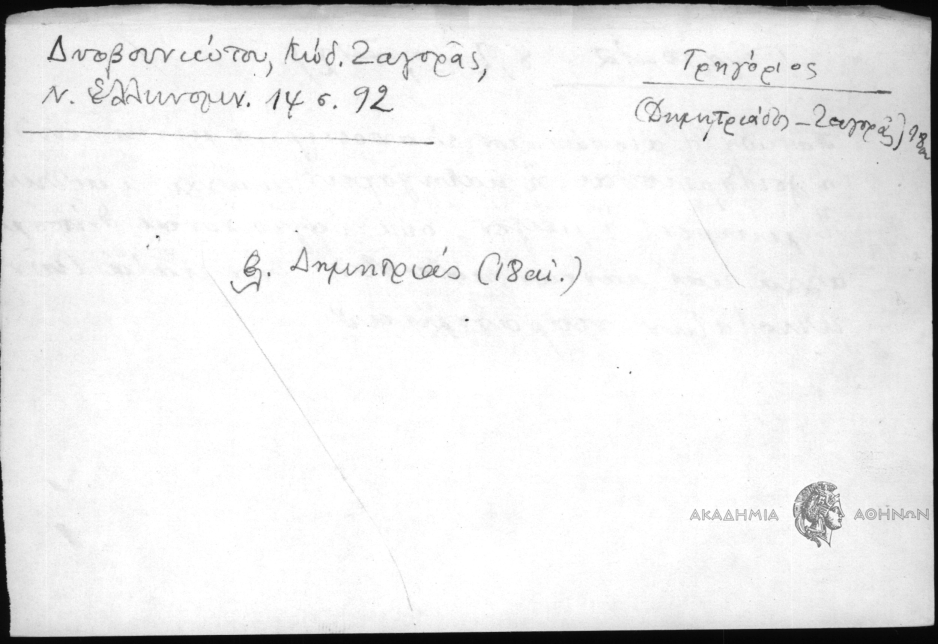 Δυοβουνιώτου, Κώδ. Ζαγορᾶς,
Ν. Ἑλληνομν. 14 σ. 92
Γρηγόριος
(Δημητριάδος – Ζαγορᾶς) 18
βλ. Δημητριάς (18 αἰ.)
ΑΚΑΔΗΜΙΑ ΑΘΗΝΩΝ